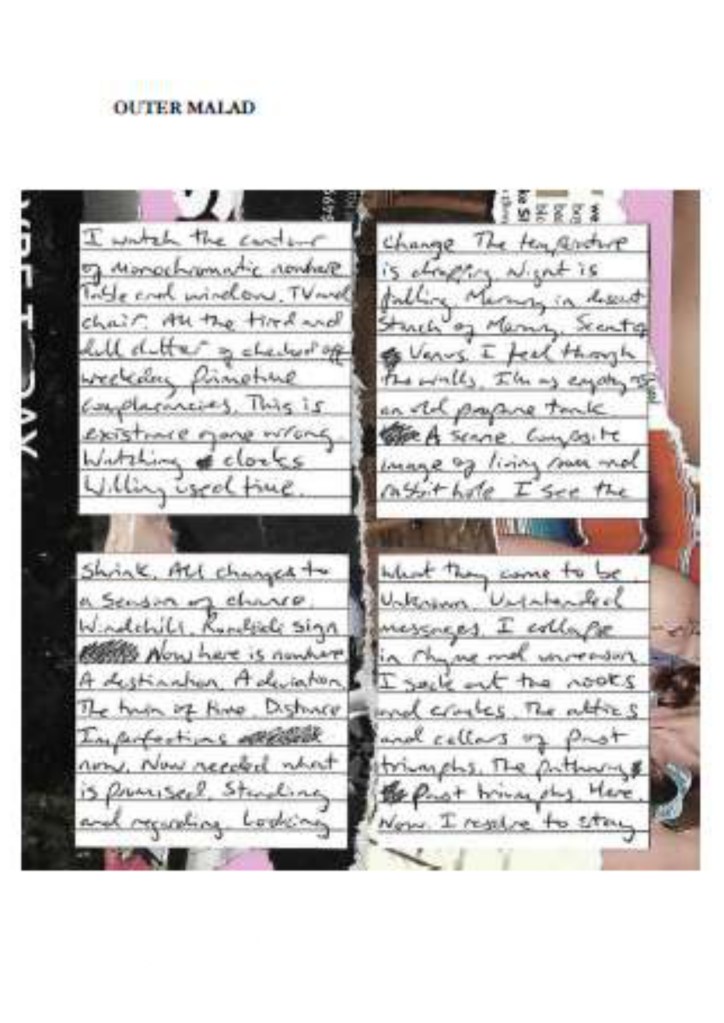 OUTER MALAD
I watch the contour
of monochromatic nowhere
Table and window. TV and
chair. All the tired and
dull clutter of checked off
weekday primetime
complacencies. This is
existence gone wrong.
Watching clocks
Willing used time.
Change The temperature
is dropping Night is
falling Mercury in descent
Starch of Mercury. Scent of
Venus. I feel through
the walls. I'm as empty as
an old propane tank
A scene. Composite
image of living room and
rabbit hole I see the
Shrink. All changes to
a season of chance.
Windchill. Roadside sign
Now here is nowhere
A destination. A deviation
The turn of time. Distance
Imperfections
now. Now needed what
is promised. Standing
and regarding Looking
What they come to be
Unknown. Unintended
messages. I collapse
in rhyme and unreason
I seek out the nooks
and crooks. The attics
and cellars of past
triumphs. The pathways
Past triumphs. Here.
Now. I resolve to stay